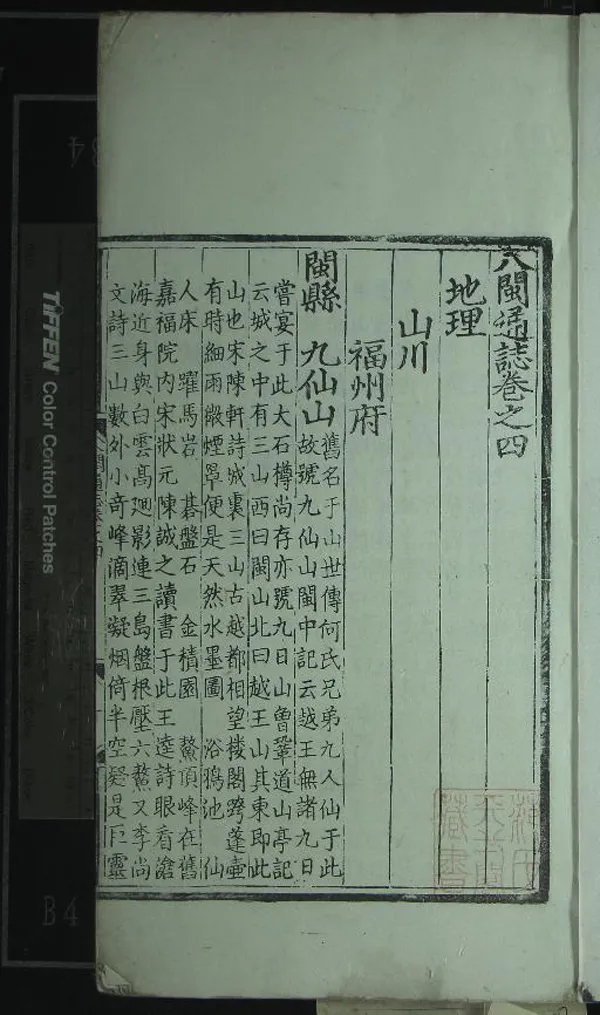 八閩通誌卷之四
地理
山川
福州府
閩縣 九仙山
舊名于山世傳何氏兄弟九人仙于此
故號九仙山閩中記云越王無諸九日
嘗宴于此大石樽尚存亦號九日山曾鞏道山亭記
云城之中有三山西曰閩山北曰越王山其東即此
山也宋陳軒詩城裏三山古越都相望樓閣跨蓬壺
有時細雨微煙罩便是天然水墨圖 浴鴉池 仙
人床 躍馬岩 碁盤石 金積園 鰲頂峰在舊
嘉福院内宋狀元陳誠之讀書于此王逵詩眼看滄
海近身與白雲高廻影連三島盤根壓六鰲又李尚
文詩三山數外小奇峰滴翠凝烟倚半空疑是巨靈
藏書
TIFFEN Color Control Patches
B4